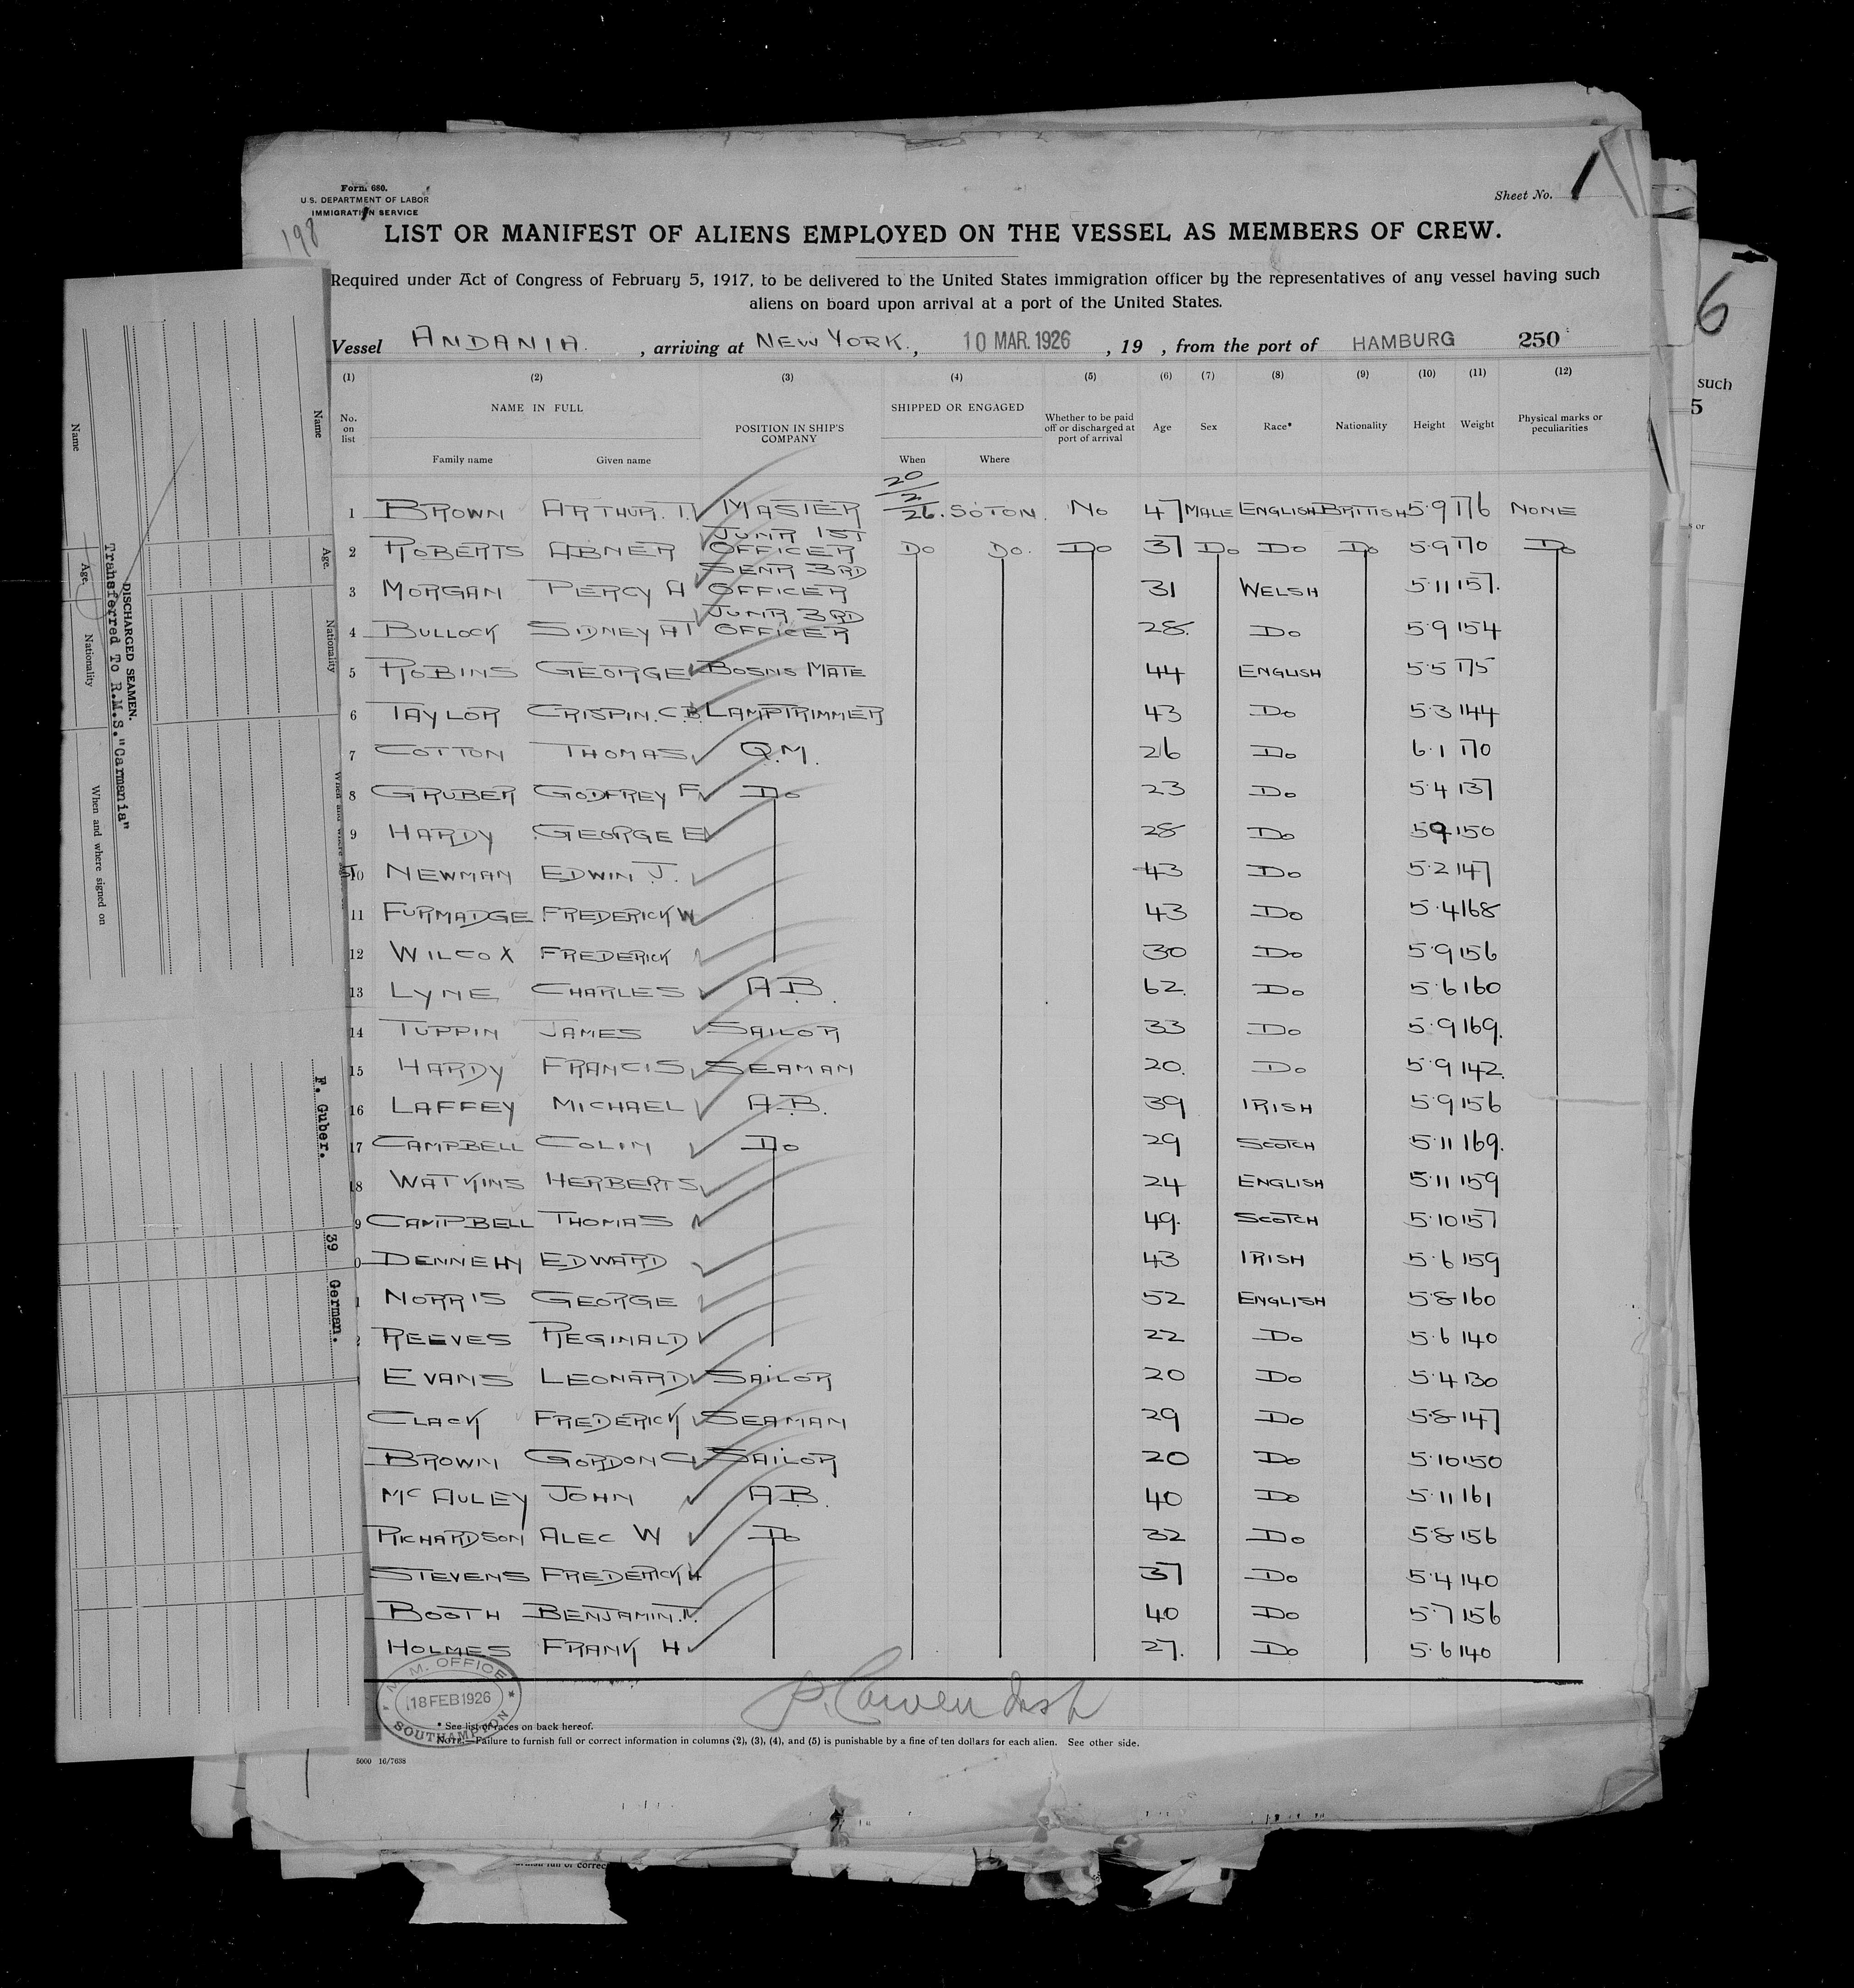 Form 680.
U.S. DEPARTMENT OF LABOR
IMMIGRATION SERVICE
198
Sheet No. 1
LIST OR MANIFEST OF ALIENS EMPLOYED ON THE VESSEL AS MEMBERS OF CREW.
Required under Act of Congress of February 5, 1917, to be delivered to the United States immigration officer by the representatives of any vessel having such
aliens on board upon arrival at a port of the United States.
Vessel ANDANIA. , arriving at NEW YORK. , 10 MAR. 1926 , 19 , from the port of HAMBURG 250
(1) (2) (3) (4) (5) (6) (7) (8) (9) (10) (11) (12)
No. on list NAME IN FULL POSITION IN SHIP'S COMPANY SHIPPED OR ENGAGED Whether to be paid off or discharged at port of arrival Age Sex Race* Nationality Height Weight Physical marks or peculiarities
Family name Given name When Where
1 BROWN ARTHUR. MASTER 20/2/26. SOTON. NO 47 MALE ENGLISH BRITISH 5·9 176 NONE
2 ROBERTS ABNER JUNR 1ST OFFICER DO DO. DO 37 DO DO DO 5·9 170 DO
3 MORGAN PERCY A SENR 3RD OFFICER 31 WELSH 5·11 157.
4 BULLOCK SIDNEY AT JUNR 3RD OFFICER 28. DO 5·9 154
5 ROBINS GEORGE BOSNS MATE 44 ENGLISH 5·5 175
6 TAYLOR CRISPIN. C.B LAMPTRIMMER 43 DO 5·3 144
7 COTTON THOMAS Q.M. 26 DO 6·1 170
8 GRUBER GODFREY F DO 23 DO 5·4 137
9 HARDY GEORGE E 28 DO 59 150
10 NEWMAN EDWIN J. 43 DO 5·2 147
11 FURMADGE FREDERICK W 43 DO 5·4 168
12 WILCOX FREDERICK 30 DO 5·9 156
13 LYNE CHARLES A.B. 62. DO 5·6 160
14 TUPPIN JAMES SAILOR 33 DO 5·9 169.
15 HARDY FRANCIS SEAMAN 20. DO 5·9 142.
16 LAFFEY MICHAEL A.B. 39 IRISH 5·9 156
17 CAMPBELL COLIN DO 29 SCOTCH 5·11 169.
18 WATKINS HERBERT S 24 ENGLISH 5·11 159
9 CAMPBELL THOMAS 49. SCOTCH 5·10 157
0 DENNEHY EDWARD 43 IRISH 5·6 159
1 NORRIS GEORGE 52 ENGLISH 5·8 160
2 REEVES REGINALD 22 DO 5·6 140
EVANS LEONARD SAILOR 20 DO 5·4 130
CLACK FREDERICK SEAMAN 29 DO 5·8 147
BROWN GORDON G SAILOR 20 DO 5·10 150
MCAULEY JOHN A.B. 40 DO 5·11 161
RICHARDSON ALEC W DO 32 DO 5·8 156
STEVENS FREDERICK H 37 DO 5·4 140
BOOTH BENJAMIN. 40 DO 5·7 156
HOLMES FRANK H 27. DO 5·6 140
M.M. OFFICE
18 FEB 1926
SOUTHAMPTON
* See list of races on back hereof.
NOTE.—Failure to furnish full or correct information in columns (2), (3), (4), and (5) is punishable by a fine of ten dollars for each alien. See other side.
5000 16/7638
DISCHARGED SEAMEN.
Transferred To R.M.S."Carmania"
Name Age. Nationality When and where signed on
Name Age. Nationality
F. Guber. 39 German.
6
such
5